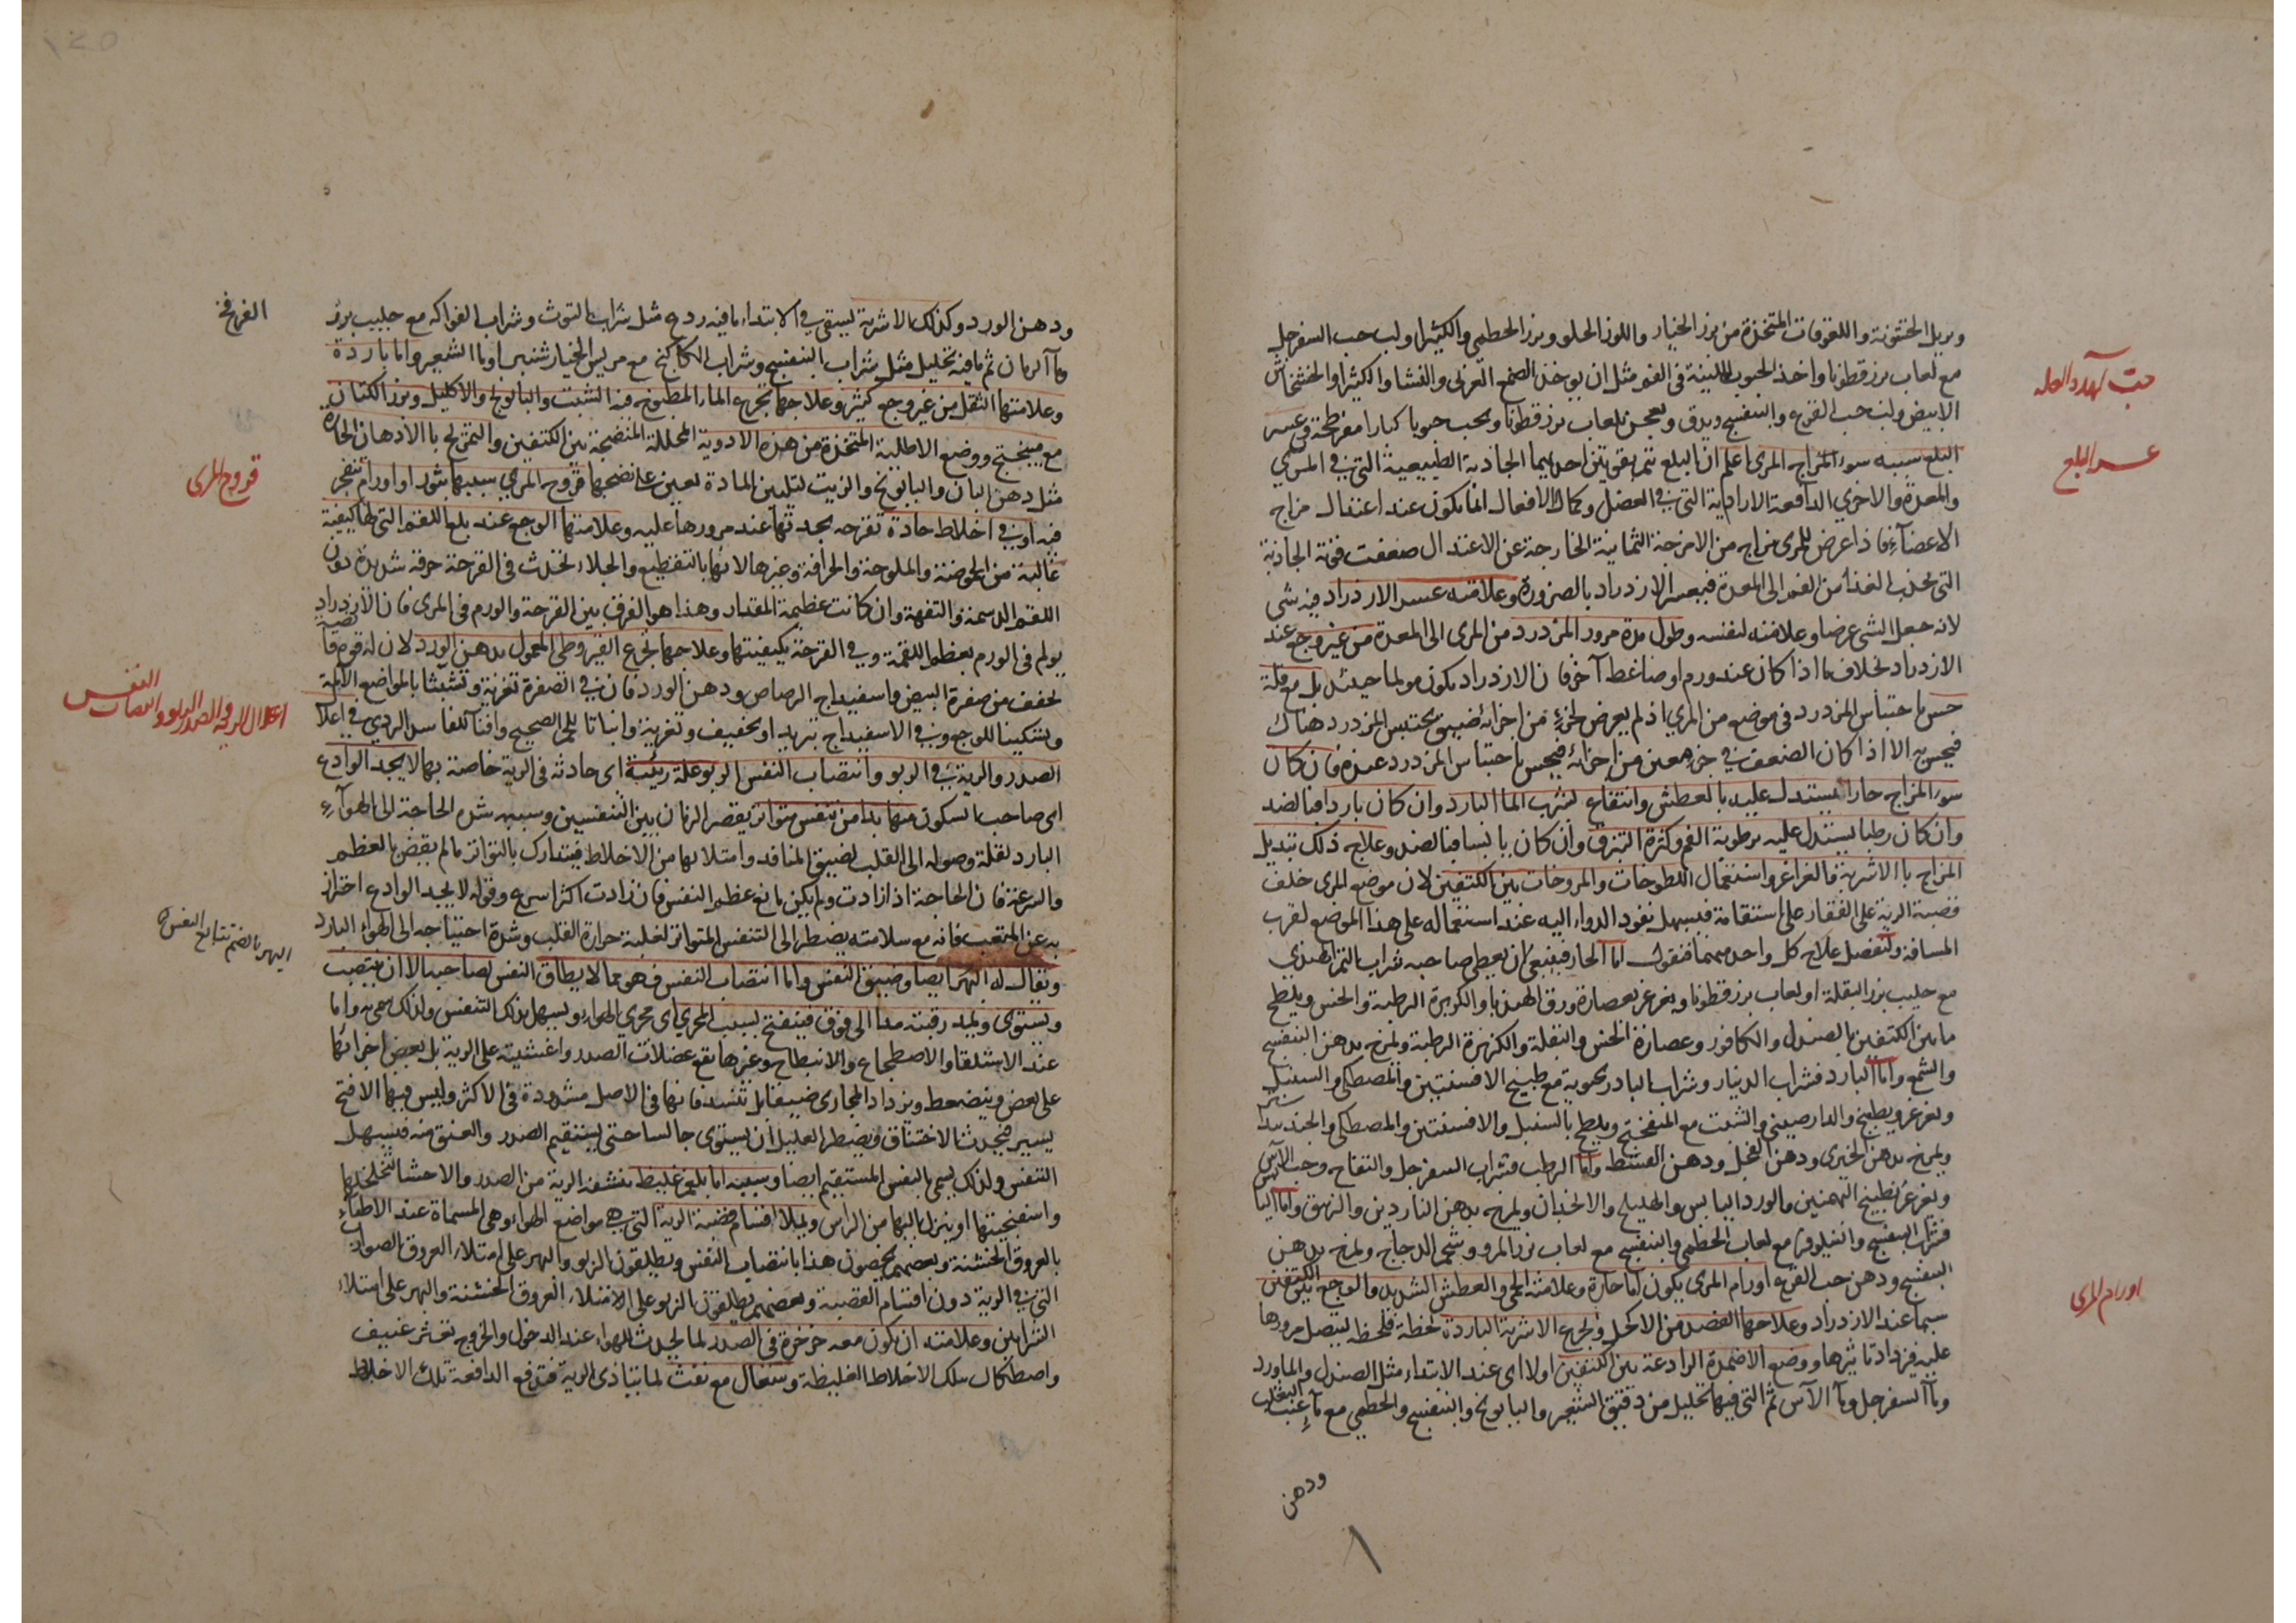 ويزيل الخشونة واللعوقات المتخذة من بزر الخيار واللوز الحلو وبزر الخطمي والكثيرا ولب حب السفرجل
مع لعاب بزرقطونا واخذ الحبوب اللينة في الفم مثل ان يوخذ الصمغ العربي والنشا والكثيرا والخشخاش
الابيض ولب حب القرع والبنفسج ويدق ويعجن بلعاب بزرقطونا ويحبب حبوبا كبارا مفرطحة في عسر
البلع سببه سوء المزاج المري اعلم ان البلع يتم بقوتين احديهما الجاذبة الطبيعية التي في المري
والمعدة والاخري الدافعة الارادية التي في العضل وكمال الافعال انما يكون عند اعتدال مزاج
الاعضاء فاذا عرض للمري مزاج من الامزجة الثمانية الخارجة عن الاعتدال ضعفت قوته الجاذبة
التي تجذب الغذا من الفم الى المعدة فيعسر الازدراد بالضرورة وعلامته عسر الازدراد فيه شي
لانه جعل الشي عرضا وعلامته لنفسه وطول مدة مرور المزدرد من المري الى المعدة من غير وجع عند
الازدراد بخلاف ما اذا كان عند ورم او ضاغط آخر فان الازدراد يكون مولما حينئذ بل مع قلة
حس باحتباس المزدرد في موضع من المري اذ لم يعرض لجزء من اجزائه ضيق يحتبس المزدرد هناك
فيحس به الا اذا كان الضعف في جزء معين من اجزائه فيحس باحتباس المزدرد عنده فان كان
سوء المزاج حارا يستدل عليه بالعطش وانتفاع بشرب الما البارد وان كان باردا فبالضد
وان كان رطبا يستدل عليه برطوبة الفم وكثرة التبزق وان كان يابسا فبالضد وعلاج ذلك تبديل
المزاج باالاشربة فالغراغر واستعمال اللطوخات والمروخات بين الكتفين لان موضع المري خلف
قصبة الرية على الفقار على استقامة فيسهل نفوذ الدواء اليه عند استعماله على هذا الموضع لقرب
المسافة ولنفصل علاج كل واحد منهما فنقول اما الحار فينبغي ان يعطي صاحبه شراب التمر الهندي
مع حليب بزر البقلة او لعاب بزرقطونا ويغرغر بعصارة ورق الهندبا والكزبرة الرطبة والخس ويلطخ
ما بين الكتفين بالصندل والكافور وعصارة الخس والبقلة والكزبرة الرطبة ويمرخ بدهن البنفسج
والشمع واما البارد فشراب الدينار وشراب البادرنجوية مع طبيخ الافسنتين والمصطكي والسنبل
ويغرغر بطبيخ والدارصيني والشبت مع الميفختج ويلطخ بالسنبل والافسنتين والمصطكي والجندبيدستر
ويمرخ بدهن الخيري ودهن الفجل ودهن القسط واما الرطب فشراب السفرجل والتفاح وحب الآس
ويغرغر بطبيخ البهمنين والورد اليابس والهليلج والانجدان ويمرخ بدهن الناردين والزنبق واما اليابس
فشراب البنفسج والنيلوفر مع لعاب الخطمي والبنفسج مع لعاب بزر المرو وشحم الدجاج ويمرخ بدهن
البنفسج ودهن حب القرع اورام المري يكون اما حارة وعلامته الحمي والعطش الشديد والوجع بين الكتفين
سيما عند الازدراد وعلاجها الفصد من الاكحل وتجرع الاشربة الباردة لحظة فلحظة ليتصل مرورها
عليه فيزداد تاثيرها ووضع الاضمدة الرادعة بين الكتفين اولا اي عند الابتداء مثل الصندل والماورد
وماء السفرجل وماء الآس ثم التي فيها تحليل من دقيق الشعير والبابونج والبنفسج والخطمي مع ماء عنب الثعلب
ودهن
عسر البلع
اورام المري
ودهن الورد وكذلك الاشربة ليسقي في الابتداء ما فيه ردع مثل شراب التوث وشراب الفواكه مع حليب بزر
ماء الرمان ثم ما فيه تحليل مثل شراب البنفسج وشراب الكاكنج مع مريس الخيارشنبر او ماء الشعير واما باردة
وعلامتها الثقل من غير وجع كثير وعلاجها تجرع الماء المطبوخ فيه الشبت والبابونج والاكليل وبزر الكتان
مع ميبختج ووضع الاطلية المتخذة من هذه الادوية المحللة المنضجة بين الكتفين والتمريخ باالادهان الحارة
مثل دهن البان والبابونج والزيت لتليين المادة يعين على نضجها قروح المري سببها بثور او اورام تنفجر
فيه او في اخلاط حادة تقرحه بحدتها عند مرورها عليه وعلامتها الوجع عند بلع اللقم التي لها كيفية
غالبة من الحموضة والملوحة والحرافة وغيرها لانها بالتقطيع والجلاء تحدث في القرحة حرقة شديدة دون
اللقم الدسمة والتفهة وان كانت عظيمة المقدار وهذا هو الفرق بين القرحة والورم في المري فان الازدراد
يولم في الورم بعظم اللقمة وفي القرحة بكيفيتها وعلاجها تجرع القيروطي المعمول بدهن الورد لان له قوة قابضة
تجفف من صفرة البيض واسفيداج الرصاص ودهن الورد فان في الصفرة تغرية وتشبثا بالمواضع الآلمة
وتسكينا للوجع وفي الاسفيداج تبريد او تجفيف وتغرية وانباتا للحم الصحيح وافناء للفاسد الردي في اعلال
الصدر والرية في الربو وانتصاب النفس الربو علة ريئية اي حادثة في الرية خاصتة بها لا يجد الوادع
اي صاحب السكون منها بدا من تنفس متواتر يقصر الزمان بين النفسين وسببه شدة الحاجة الى الهواء
البارد لقلة وصوله الى القلب لضيق المنافذ وامتلائها من الاخلاط فيتدارك بالتواتر ما لم يقبض بالعظم
والسرعة فان الحاجة اذا زادت ولم يكن مانع عظم النفس فان زادت اكثر اسرع وقوله لا يجد الوادع احتراز
به عن المتعب فانه مع سلامته يضطر الى التنفس المتواتر لغلبة حرارة القلب وشدة احتياجه الى الهواء البارد
ويقال له البهر ايضا وضيق النفس واما انتصاب النفس فهو مما لا يطاق النفس لصاحبه الا ان ينتصب
ويستوي ويمد رقبته مدا الى فوق فينفتح بسبب المجري اي مجري الهواء ويسهل بذلك التنفس ولذلك سمي به واما
عند الاستلقا والاضطجاع والانبطاح وغيرها تقع عضلات الصدر واغشيته على الرية بل بعض اجزائها
على بعض وينضغط ويزداد المجاري ضيقا بل تنسد فانها في الاصل مشدودة في الاكثر وليس فيها الا فتح
يسير فيحدث الاختناق ويضطر العليل ان يستوي جالسا حتى يستقيم الصدر والعنق منه فيسهل
التنفس ولذلك يسمي بالنفس المستقيم ايضا وسببه اما بلغم غليظ تنشفه الرية من الصدر والاحشا لتخلخلها
واسفنجيتها او ينزل اليها من الراس ويملا اقسام قصبة الرية التي هي مواضع الهواء وهي المسماة عند الاطباء
بالعروق الخشنة وبعضهم يخصون هذا بانتصاب النفس ويطلقون الربو والبهر على امتلاء العروق الضوارب
التي في الرية دون اقسام القصبة وبعضهم يطلقون الربو على الامتلاء العروق الخشنة والبهر على امتلاء
الشرايين وعلامته ان يكون معه خرخرة في الصدر لما يحدث للهواء عند الدخول والخروج تعثر عنيف
واصطكاك بتلك الاخلاط الغليظة وسعال مع نفث لما يتاذي الرية فتدفع الدافعة تلك الاخلاط
قروح المري
البهر بالضم تتابع النفس